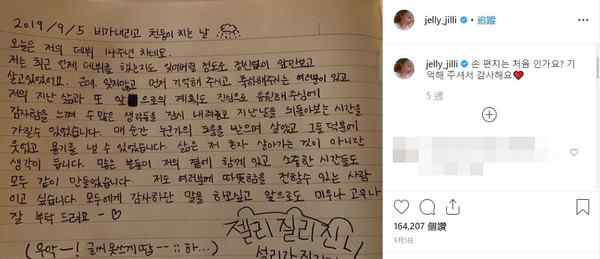 2019/9/5 비가내리고 천둥이 치는 날
오늘은 저의 데뷔 14주년 차네요.
저는 최근 언제 데뷔를 했는지도 잊어버릴 정도로 정신없이 앞만보고
살고있었어요. 근데, 잊지않고 먼저 기억해 주시고, 축하해주시는 여러분이 있고
저의 지난 삶과 또 앞으로의 계획도 진심으로 응원해주심에
감사함을 느껴 수 많은 생각들을 잠시 내려놓고 지난날을 뒤돌아보는 시간을
가질수 있었습니다. 매 순간 누군가의 도움을 받으며 살았고 그들 덕분에
웃었고 용기를 낼 수 있었습니다. 삶은 저 혼자 살아가는 것이 아니란
생각이 듭니다. 많은 분들이 저의 곁에 함께 있고 소중한 시간들도
모두 같이 만들었습니다. 저도 여러분께 따뜻함을 전할수 있는 사람
이고 싶습니다. 모두에게 감사하단 말을 하고싶고 앞으로도 미우나 고우나
잘 부탁 드려요 - ♡
젤리 질리 진리
(우악-! 글씨 못쓰게땀-- ;; 하...)
jelly_jilli • 追蹤
jelly_jilli 손 편지는 처음 인가요? 기
억해 주셔서 감사해요❤
5 週
164,207 個讚
9月5日